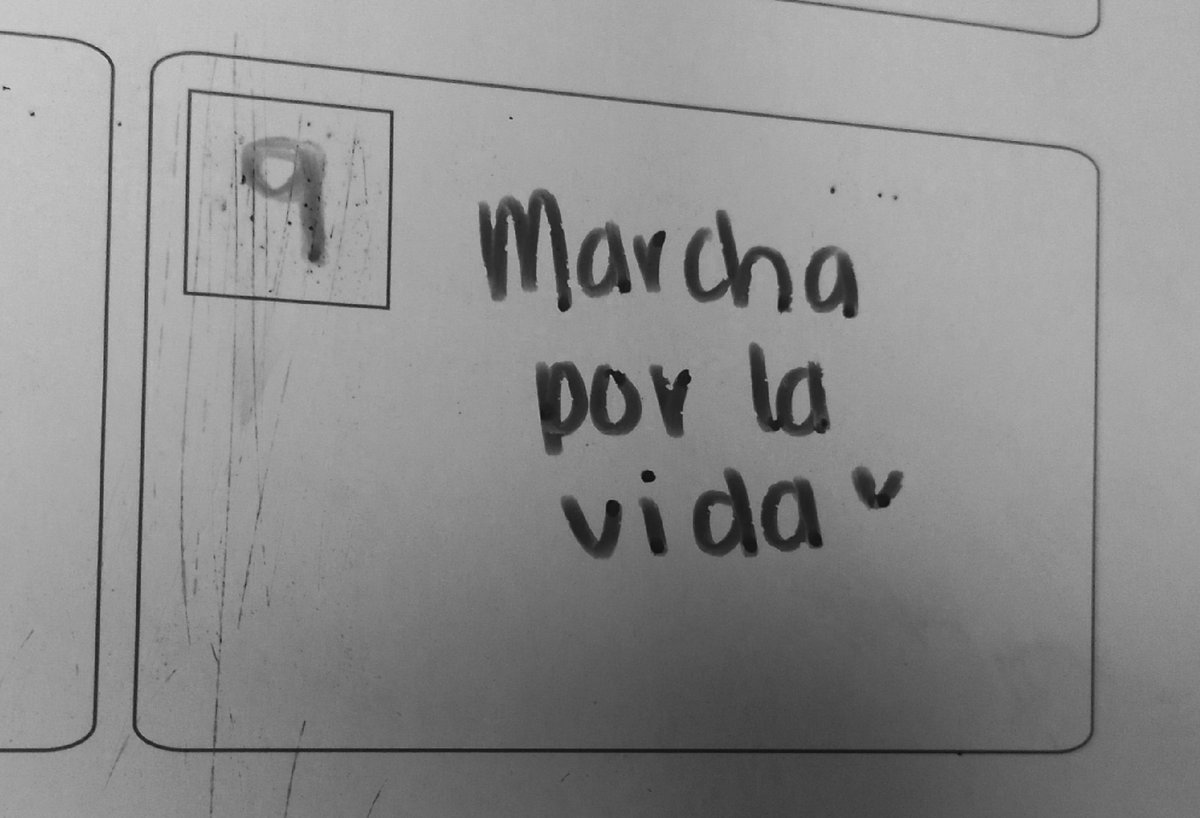 9
Marcha
por la
vida